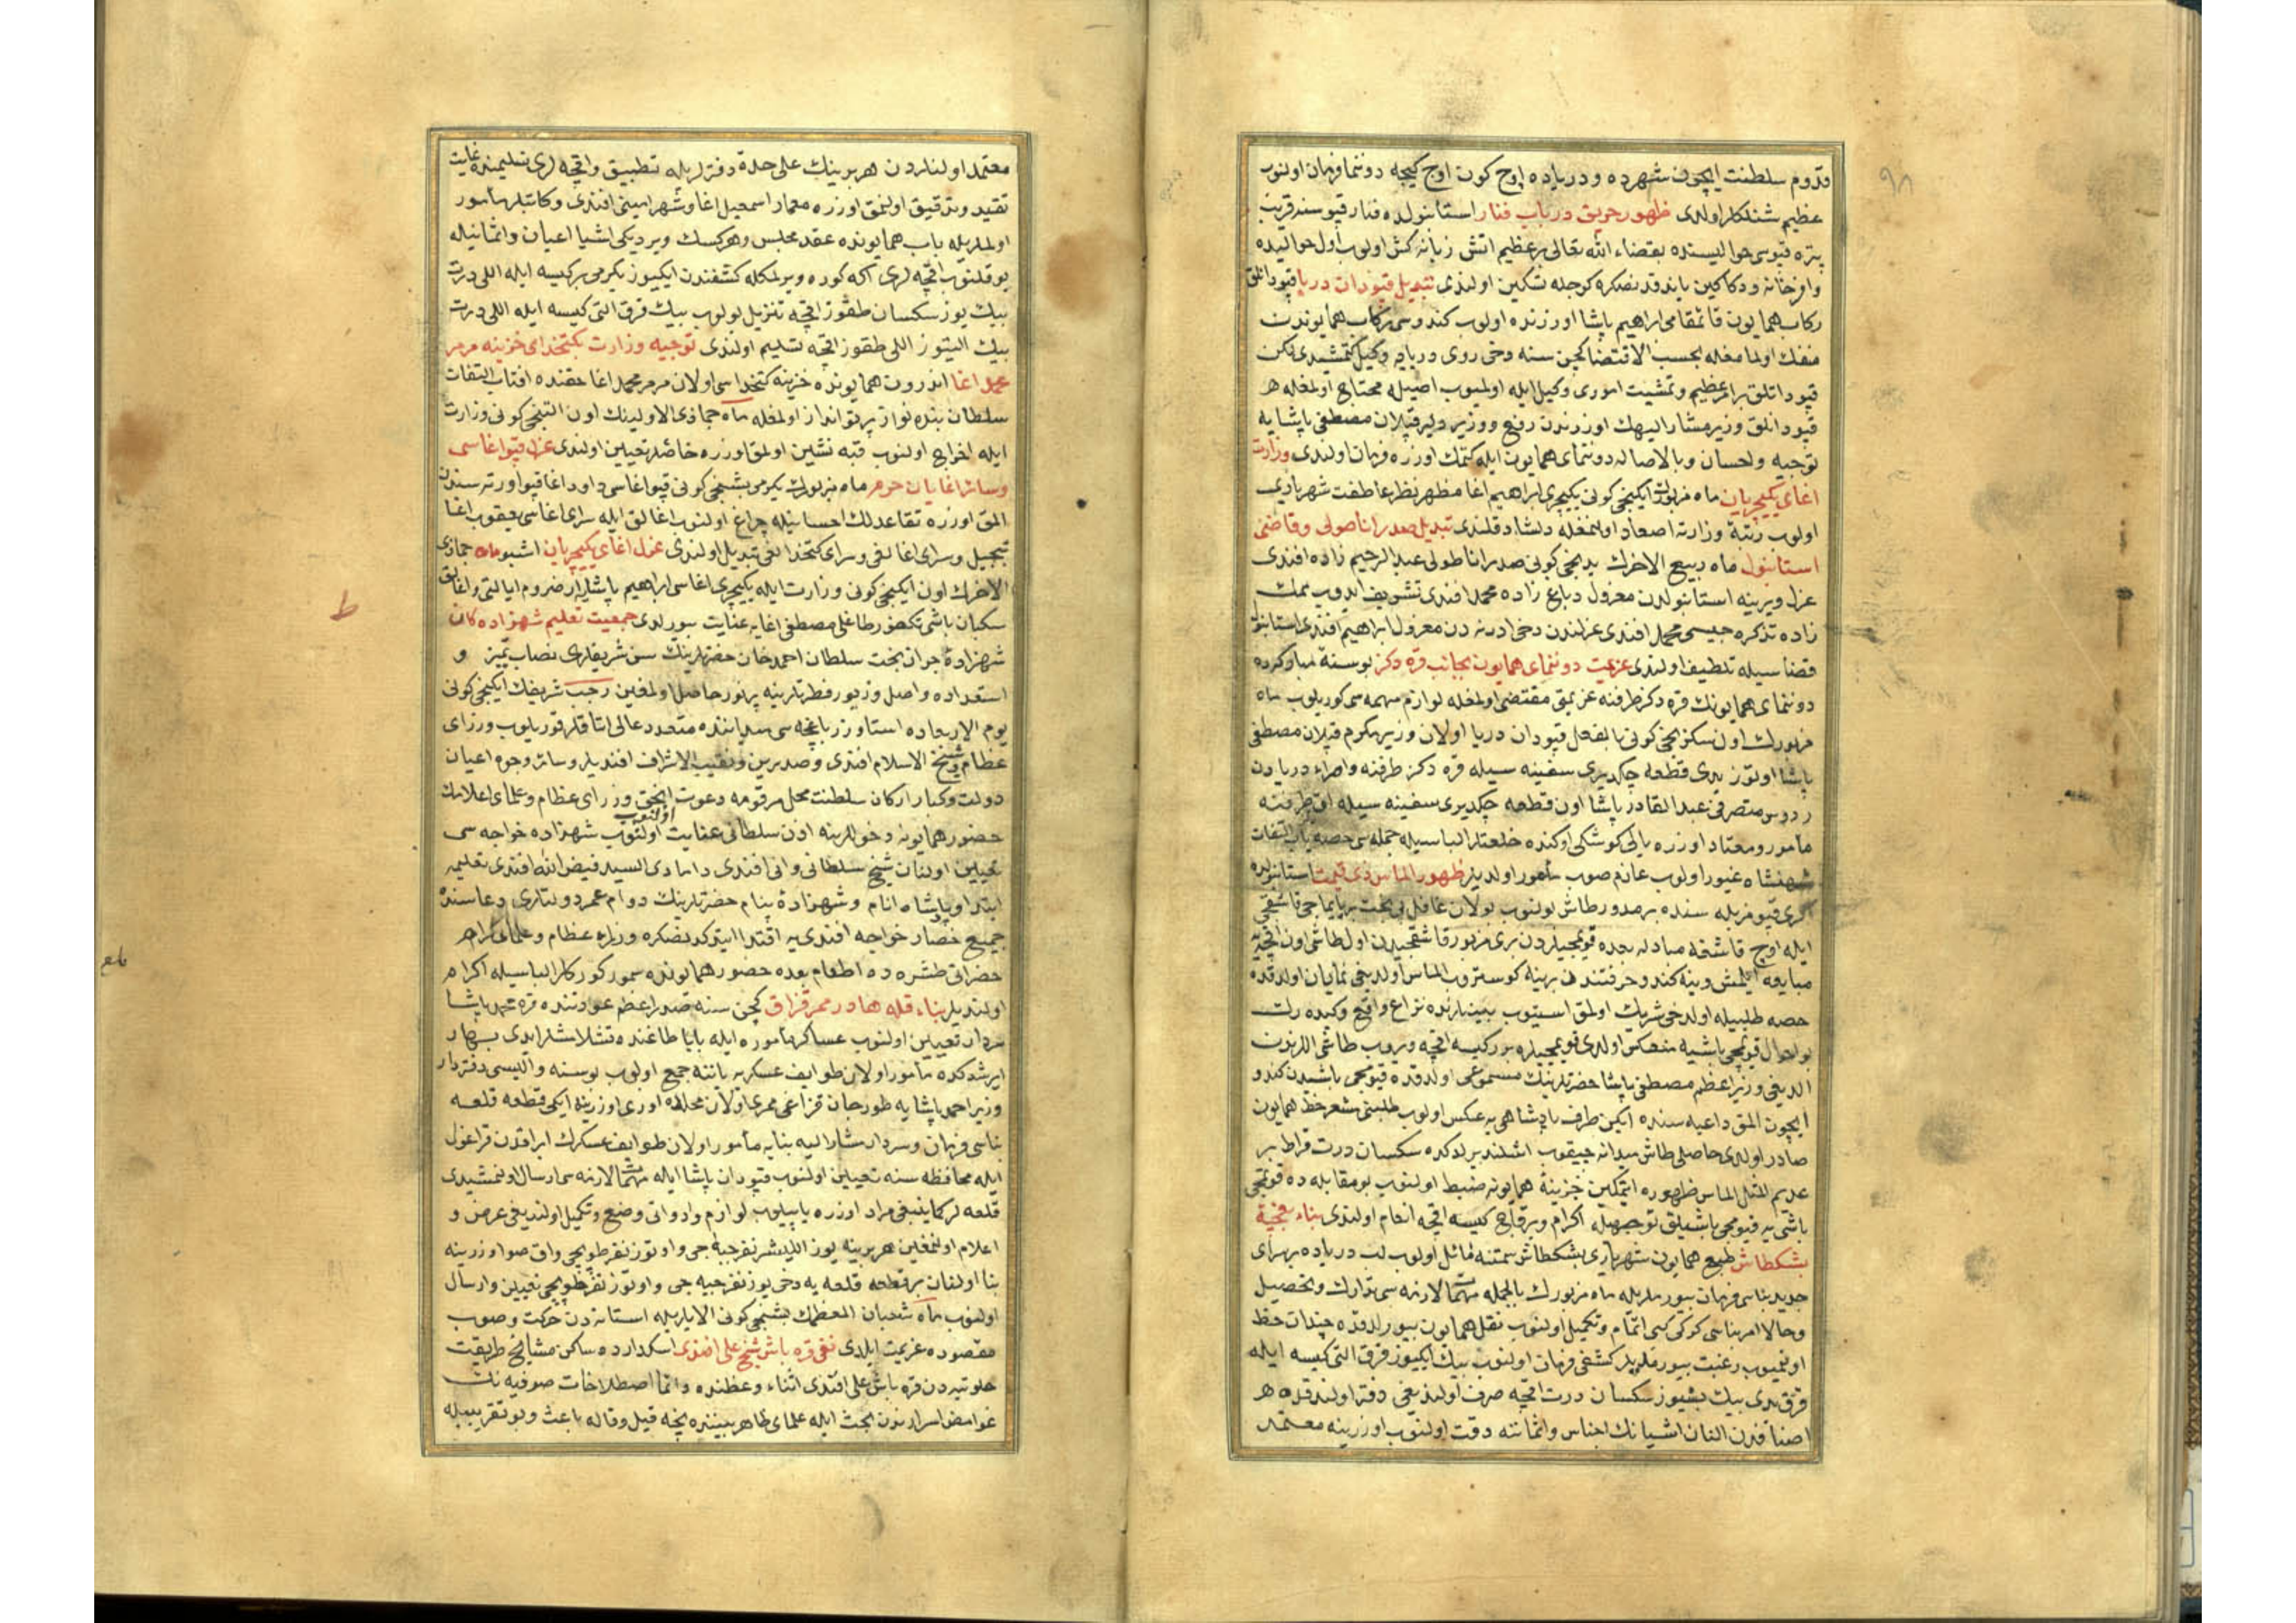 ٩٨
قدوم سلطنت ايچون شهرده و درياده اوچ كون اوچ كيجه دوننما فرمان اولنوب
عظيم شنلكلر اولدى ظهور حريق در باب فنار استانبولده فنار قپوسنه قريب
پتره قپوسى حواليسنده بقضاء الله تعالى بر عظيم اتش زبانه كش اولوب اول حواليده
وافر خانه و دكاكين ياندقدنصكره كوجله تسكين اولندى تبديل قپودان دريا قپودانلق
ركاب همايون قائمقامى ابراهيم پاشا اوزرنده اولوب كندوسى ركاب همايوندن
منفك اولمامغله بحسب الاقتضا كچن سنه دخى روى دريايه وكيل كتمشيدى لكن
قپودانلق بر امر عظيم و تمشيت امورى وكيل ايله اولميوب اصيله محتاج اولمغله
قپودانلق وزير مشار اليهك اوزرندن رفع و وزير دلير قپلان مصطفى پاشايه
توجيه و احسان و بالاصاله دوننماى همايون ايله كتمك اوزره فرمان اولندى وزارت
اغاى يكيچريان ماه مزبورك ايكنجى كونى يكيچرى ابراهيم اغا مظهر نظر عاطفت شهريارى
اولوب رتبه وزارته اصعاد اولنمغله دلشاد قلندى تبديل صدر اناطولى وقاضئ
استانبول ماه ربيع الاخرك يدنجى كونى صدر اناطولى عبد الرحيم زاده افندى
عزل و يرينه استانبولدن معزول دباغ زاده محمد افندى تشريف ايدوب
زاده تذكره جيسى محمد افندى عزلندن دخى ادرنه دن معزول ابراهيم افندى استانبول
قضاسيله تلطيف اولندى عزيمت دوننماى همايون بجانب قره دكز بو سنه مباركده
دوننماى همايونك قره دكز طرفنه عزيمتى مقتضى اولمغله لوازم مهمه سى كوريلوب ماه
مزبورك اون سكزنجى كونى بالفعل قپودان دريا اولان وزير مكرم قپلان مصطفى
پاشا اوتوز يدى قطعه چكديرى سفينه سيله قره دكز طرفنه و امراء دريادن
ردوس متصرفى عبد القادر پاشا اون قطعه چكديرى سفينه سيله اق دكز طرفنه
مأمور و معتاد اوزره يالى كوشكى اوكنده خلعتلر الباسيله جمله سى حصه ياب التفات
شهنشاه غيور اولوب عازم صوب مأمور اولديلر ظهور الماس ذى قيمت استانبولده
اكرى قپو مزبله سنده بر مدور طاش بولنوب بولان غافل بى بخت بر يايماجى قاشقجى
ايله اوچ قاشقه مبادله بعده قويمجيلردن برى مزبور قاشقجيدن اول طاشى اون اقچه يه
مبايعه ايلمش وينه كندو حرفتندن برينه كوستروب الماس اولديغى نمايان اولدقده
حصه طلبيله اولدخى شريك اولمق استيوب بينلرنده نزاع واقع
بو احوال قويمجى باشيه منعكس اولدى قويمجيلره برر كيسه اقچه ويروب طاشى اللرندن
الديغى وزير اعظم مصطفى پاشا حضرتلرينك مسموعى اولدقده قويمجى باشيدن كندو
ايچون المق داعيه سنده ايكن طرف پادشاهى يه عكس اولوب طلبنى مشعر خط همايون
صادر اولدى حاصلى طاش ميدانه چيقوب اشلنديرلدكده سكسان درت قراط بر
عديم المثل الماس ظهوره ايتمكين خزينه همايونه ضبط اولنوب بو مقابله ده قويمجى
باشى يه قپوجى باشيلق توجيهيله اكرام و بر قاچ كيسه اقچه انعام اولندى بناء
بشكطاش طبع همايون شهريارى بشكطاش سمتنه مائل اولوب لب درياده بر سراى
جديد بناسى فرمان بيورملريله ماه مزبورك بالجمله مهمات لازمه سى تدارك و تحصيل
وحالا امر بناسى كركى كبى اتمام و تكميل اولنوب نقل همايون بيورلدقده چندان حظ
اولنميوب رغبت بيورمديلر كشفى فرمان اولنوب بيك ايكيوز قرق التى كيسه ايله
قرق يدى بيك بشيوز سكسان درت اقچه صرف اولنديغى دفتر اولندقده هر
اصنافدن النان اشيانك اجناس و اثماننه دقت اولنوب اوزرينه معتمد
معتمد اولنلردن هر برينك على حده دفترلريله تطبيق و اقچه لرى تسليمنده غايت
تقيد و تدقيق اولنمق اوزره معمار اسمعيل اغا و شهر امينى افندى و كاتبلر مأمور
اولملريله باب همايونده عقد مجلس و هر كسك ويرديكى اشيا اعيان و اثمانيله
يوقلنوب اقچه لرى اكه كوره ويرلمكله كشفندن ايكيوز يكرمى بر كيسه ايله اللى درت
بيك يوز سكسان طقوز اقچه تنزيل بولوب بيك قرق التى كيسه ايله اللى درت
بيك التيوز اللى طقوز اقچه تسليم اولندى توجيه وزارت بكتخداى خزينه مرمر
محمد اغا اندرون همايونده خزينه كتخداسى اولان مرمر محمد اغا حقنده افتاب التفات
سلطان بنده نواز پرتو انداز اولمغله ماه جماذى الاولينك اون التنجى كونى وزارت
ايله اخراج اولنوب قبه نشين اولمق اوزره خاصلر تعيين اولندى عزل قپو اغاسى
وسائر اغايان حرم ماه مزبورك يكرمى بشنجى كونى قپو اغاسى داود اغا قپو اورته سندن
المق اوزره تقاعدلك احسانيله چراغ اولنوب اغالق ايله سراى اغاسى يعقوب اغا
تبجيل و سراى اغالغى و سراى كتخدالغى تبديل اولندى عزل اغاى يكيچريان اشبو ماه جماذى
الاخرك اون ايكنجى كونى وزارت ايله يكيچرى اغاسى ابراهيم پاشايه ارضروم ايالتى و اغالق
سكبان باشى تكفور طاغلى مصطفى اغايه عنايت بيورلدى جمعيت تعليم شهزاده كان
شهزاده جوان بخت سلطان احمد خان حضرتلرينك سن شريفلرى نصاب تميز و
استعداده واصل و زيور فطرتلرينه پرتو حاصل اولمغين رجب شريفك ايكنجى كونى
يوم الاربعاده استاوز باغچه سى ميداننده متعدد عالى اوتاقلر قوريلوب وزراى
عظام و شيخ الاسلام افندى و صدرين و نقيب الاشراف افنديلر و سائر وجوه اعيان
دولت و كبار اركان سلطنت محل مرقومه دعوت وزراى عظام و علماى اعلامك
حضور همايونه دخوللرينه اذن سلطانى عنايت اولنوب شهزاده خواجه سى
تعيين اولنان شيخ سلطانى وانى افندى دامادى السيد فيض الله افندى تعليمه
ابتدا و پادشاه انام و شهزاده بنام حضرتلرينك دوام عمر و دولتلرى دعاسنده
جميع حضار خواجه افندى يه اقتدا ايتدكدنصكره وزراء عظام و علماى كرام
حضراتى طشره ده اطعام بعده حضور همايونده سمور كوركلر الباسيله اكرام
اولنديلر بناء قلعه ها در ممر قزاق كچن سنه صدر اعظم عودتنده قره محمد پاشا
سردار تعيين اولنوب عساكر مأموره ايله بابا طاغنده قشلامشلر ايدى بهار
ايرشدكده مأمور اولان طوايف عسكريه ياننه جمع اولوب بو سنه واليسى دفتردار
وزير احمد پاشايه طورجان قزاغى ممرى اولان محلده اوزى اوزرينه ايكى قطعه قلعه
بناسى فرمان و سردار مشار اليه بنايه مأمور اولان طوايف عسكرك ايراقدن قراغول
ايله محافظه سنه تعيين اولنوب قپودان پاشا ايله مهمات لازمه سى ارسال اولنمشيدى
قلعه لر كما ينبغى مراد اوزره ياپيلوب لوازم و ادواتى وضع و تكميل اولنديغى عرض و
اعلام اولنمغين هر برينه يوز اللیشر نفر جبه جى و اوتوز نفر طوپجى و اق صو اوزرينه
بنا اولنان بر قطعه قلعه يه دخى يوز نفر جبه جى و اوتوز نفر طوپجى تعيين و ارسال
اولنوب ماه شعبان المعظمك بشنجى كونى الايلريله استانه دن حركت و صوب
مقصوده عزيمت ايلدى نفى قره باش شيخ على افندى اسكدارده ساكن مشايخ طريقت
خلوتيه دن قره باش على افندى اثناء وعظنده دائما اصطلاحات صوفيه نك
غوامض اسرارندن بحث ايله علماى ظاهر بيننده نيجه قيل و قاله باعث و بو تقريبله
ط